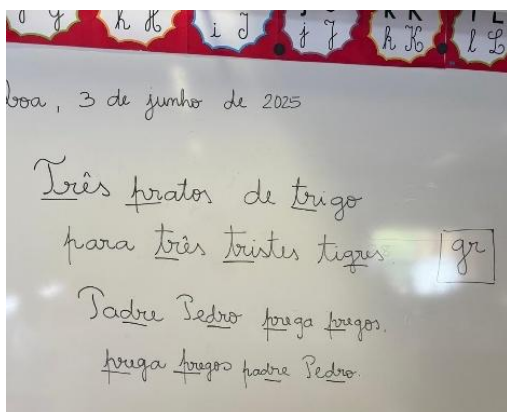 h H
i I
j J
k K
l L
boa, 3 de junho de 2025
Três pratos de trigo
para três tristes tigres.
gr
Padre Pedro prega pregos.
prega pregos padre Pedro.